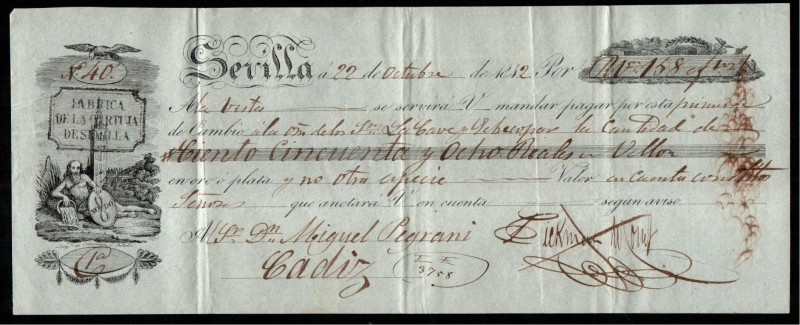 Nº 40.
FABRICA
DE LA CARTUJA
DE SEVILLA
1ª
Sevilla á 22 de Octubre de 1842 Por Rvn 158
A la vista se servirá V. mandar pagar por esta primera
de Cambio á la orn de los Sres La Cave y Echecopar la Cantidad de
Ciento Cincuenta y Ocho Reales Vellon
en oro ó plata y no otra especie Valor en cuenta con dhos
Señores que anotará V. en cuenta según aviso
Al Sr Dn Miguel Pegrani
Cadiz
3758